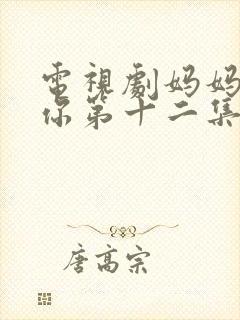 電視劇妈妈
你第十二集
唐高宗